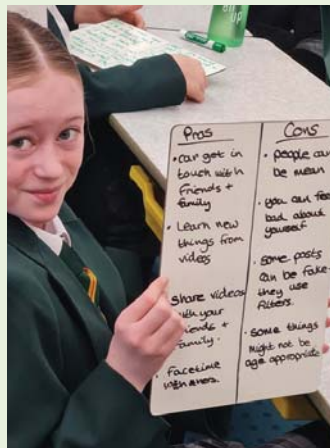 air
up
Pros
• can get in
touch with
friends +
family
• Learn new
things from
videos
share videos
with your
friends +
family.
• Facetime
with others.
Cons
• people can
be mean
• you can feel
bad about
yourself
• some posts
can be fake
they use
filters.
• some things
might not be
age appropriate